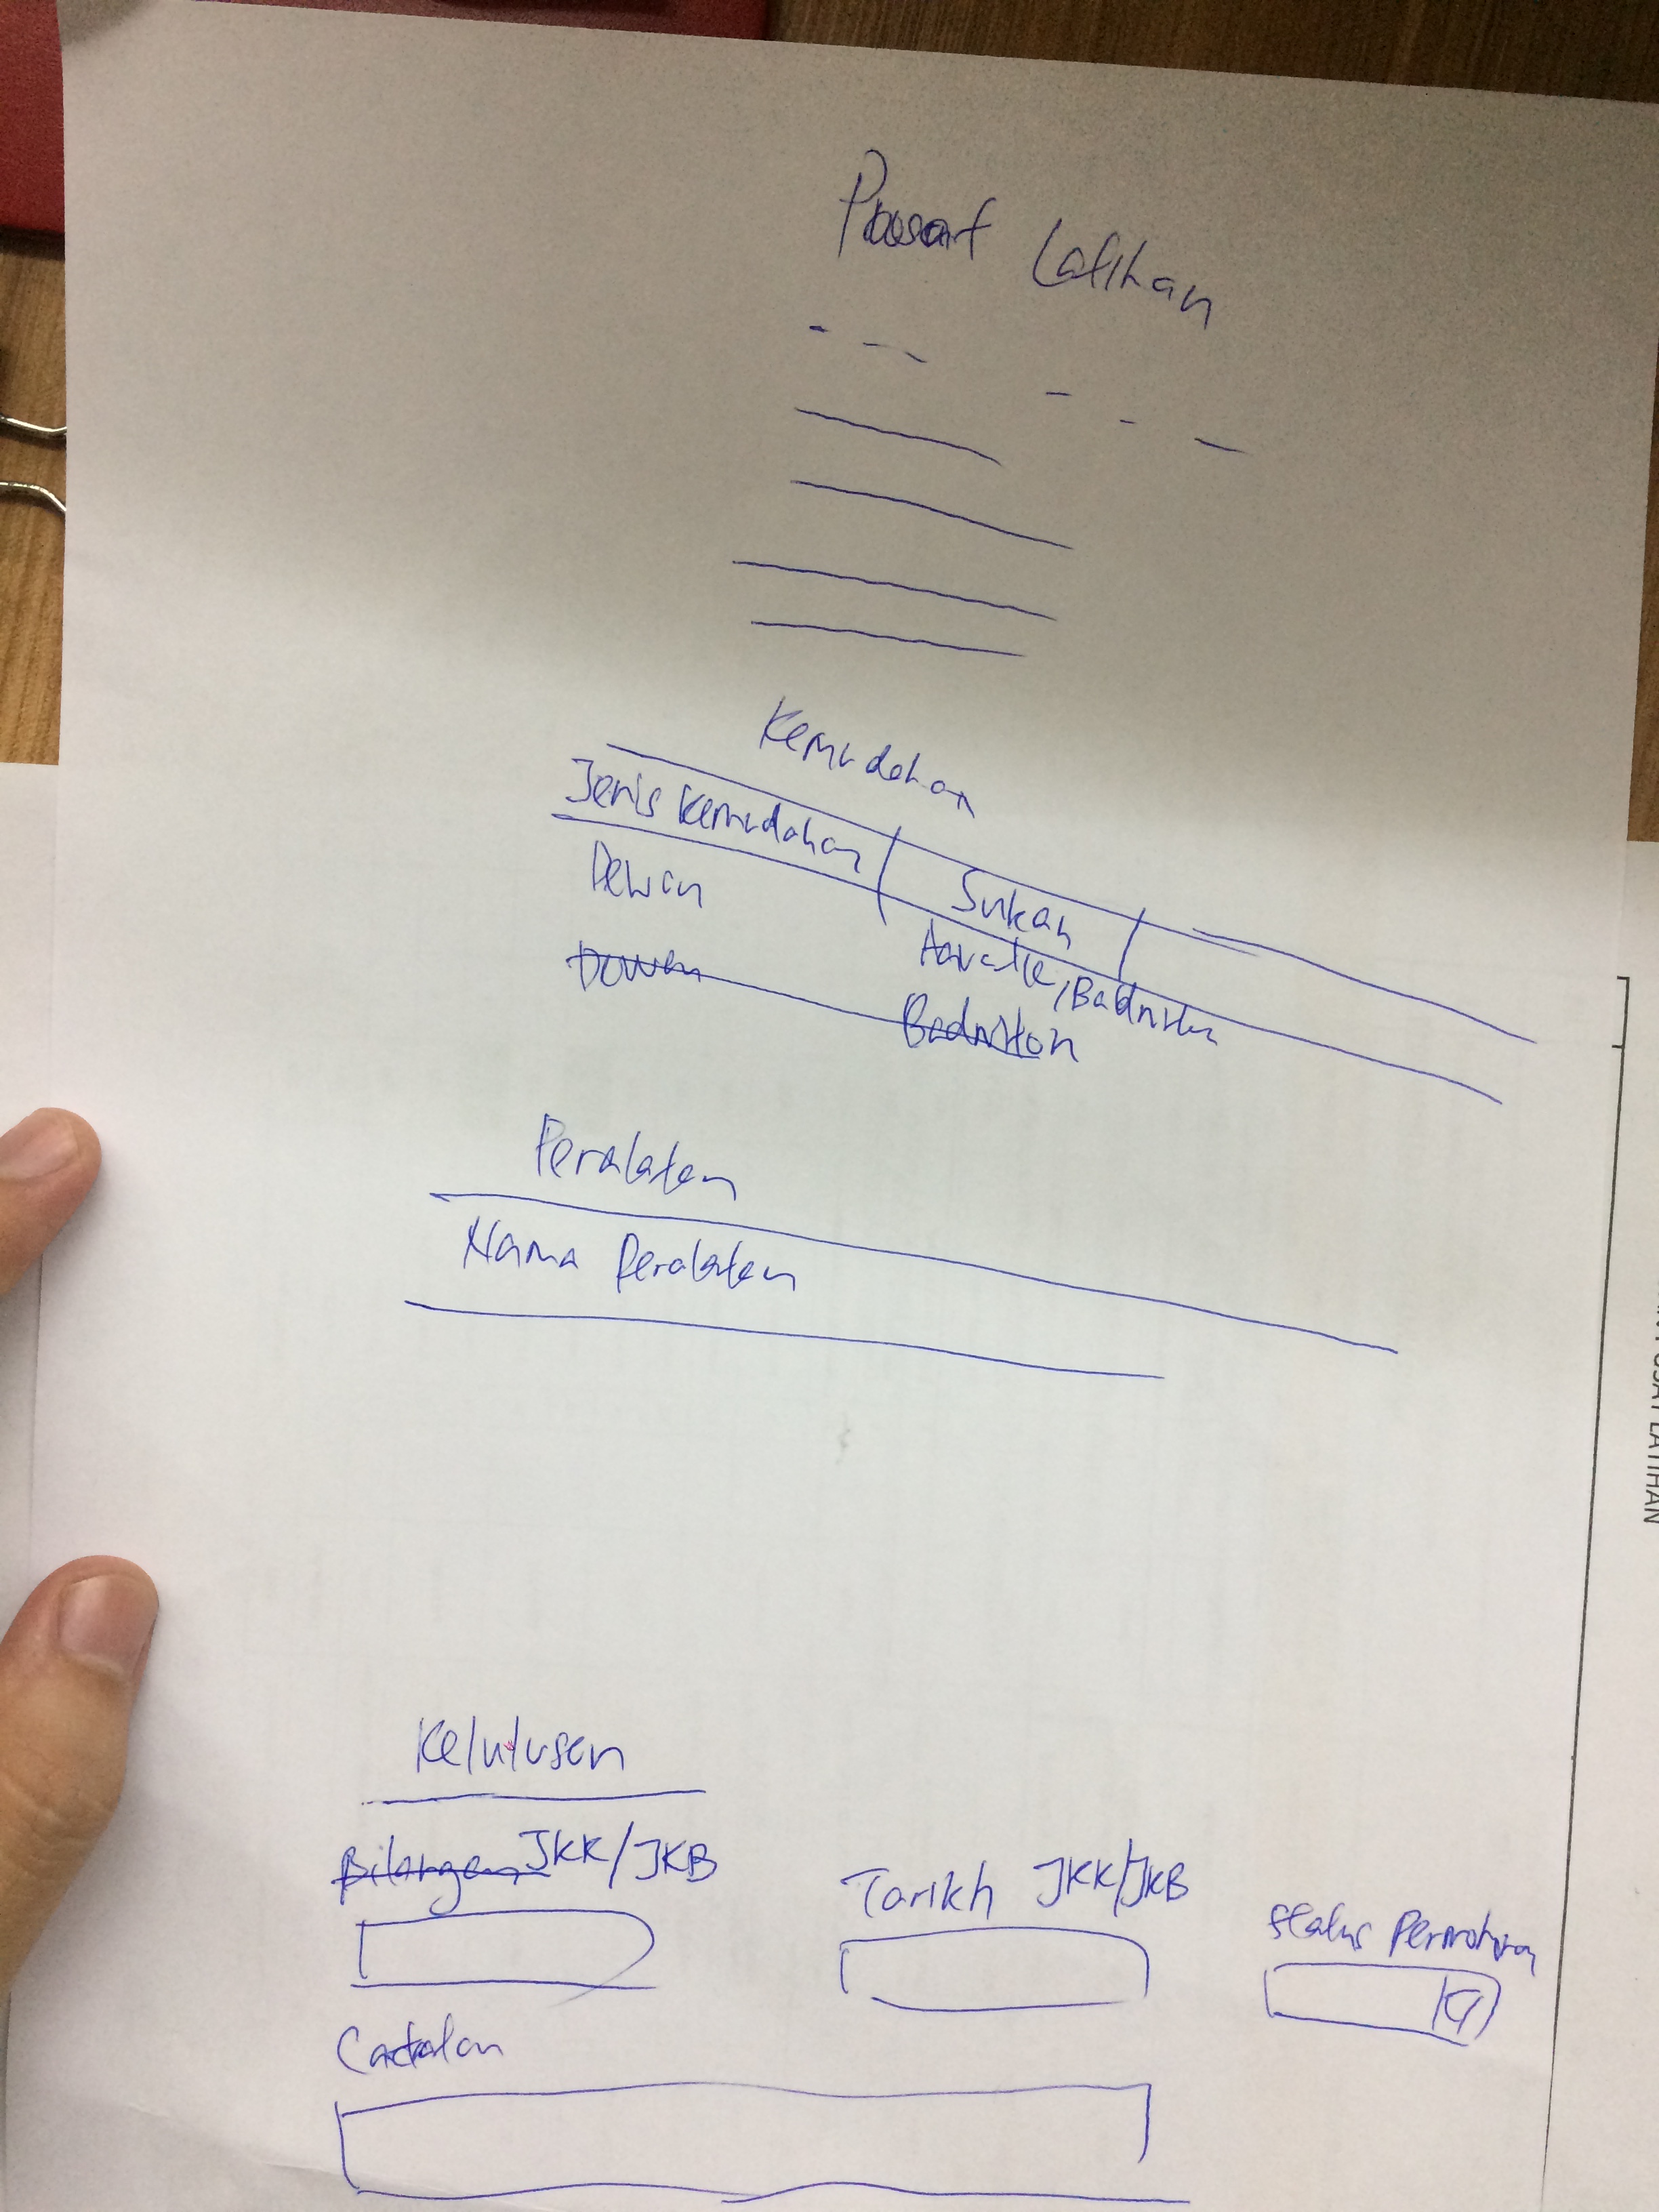 Pusat Latihan
Kemudahan
Jenis Kemudahan
Sukan
Dewan
Badnitn
Dewan
Badniton
Peralatan
Nama Peralatan
PUSAT LATIHAN
Kelulusan
Bilangan JKK/JKB
Tarikh JKK/JKB
Status Permohonan
Catatan